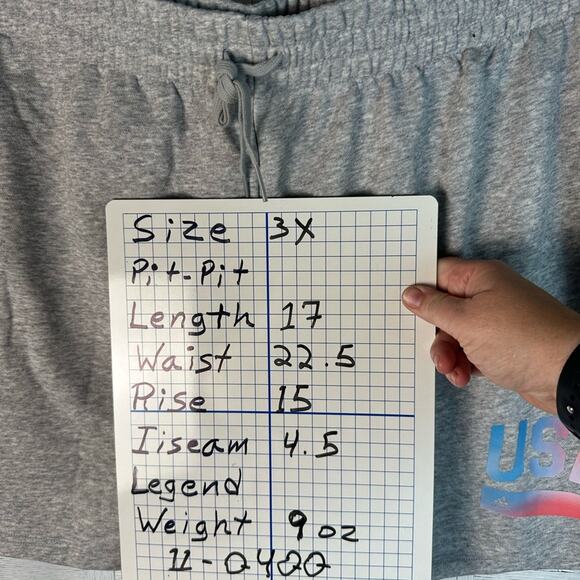 Size 3X
Pit-Pit
Length 17
Waist 22.5
Rise 15
Iiseam 4.5
Legend
Weight 9 oz
11-0400
US